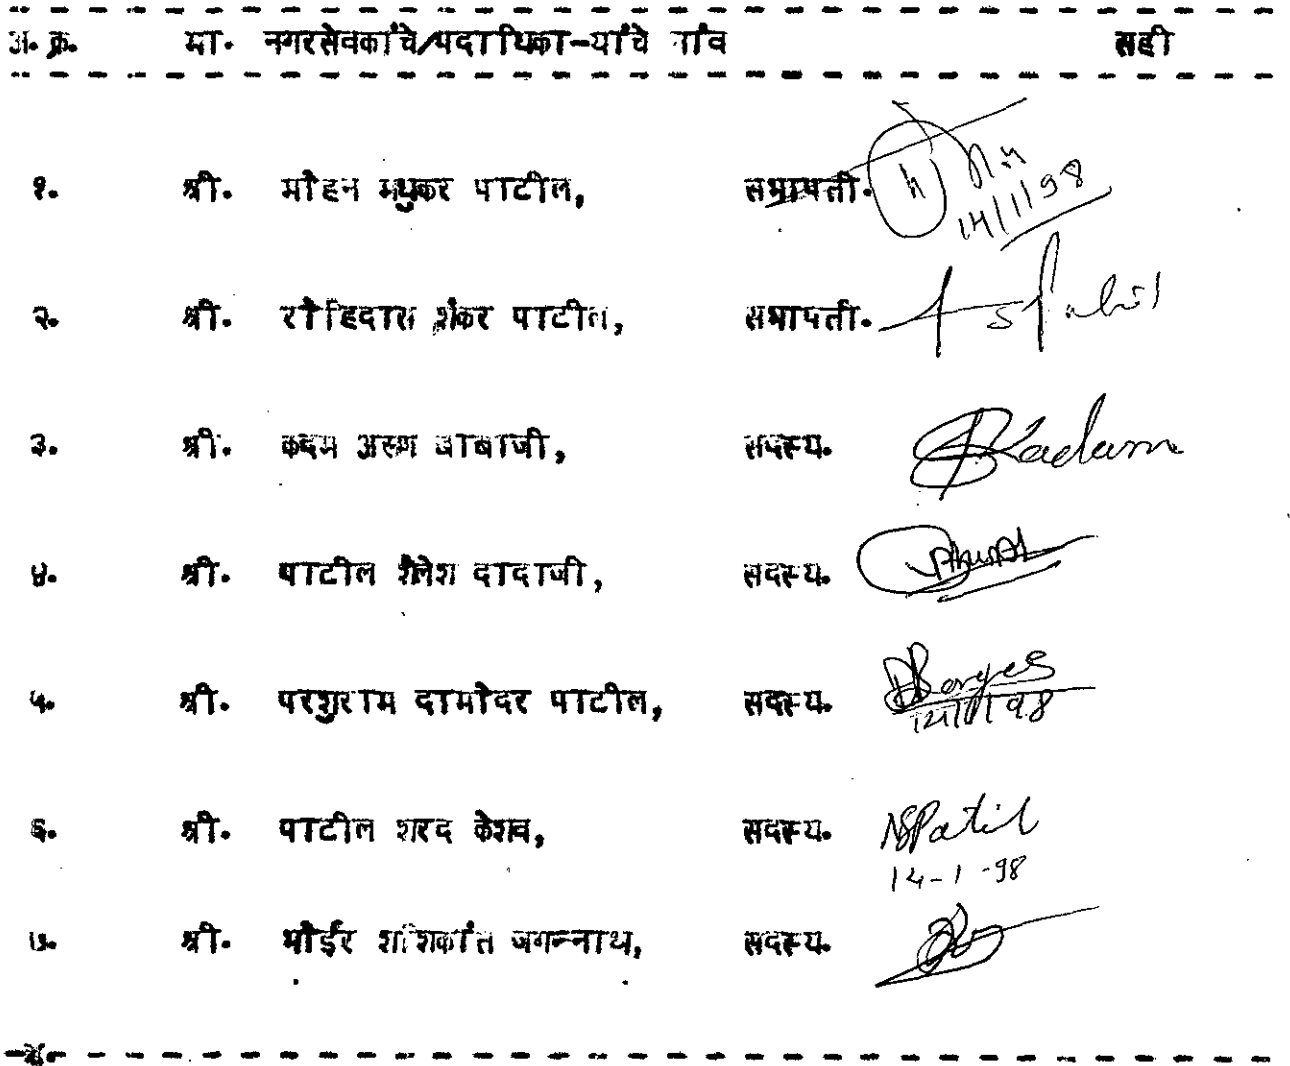 अ. क्र. मा. नगरसेवकांचे/पदाधिका-यांचे नांव सही
१. श्री. मोहन मधुकर पाटील, सभापती. 14/1/98
२. श्री. रोहिदास शंकर पाटील, सभापती.
३. श्री. कदम अरूण बाबाजी, सदस्य. Kadam
४. श्री. पाटील शैलेश दादाजी, सदस्य.
५. श्री. परशुराम दामोदर पाटील, सदस्य.
14/1/98
६. श्री. पाटील शरद केशव, सदस्य. NSPatil
14-1-98
७. श्री. भोईर शशिकांत जगन्नाथ, सदस्य.